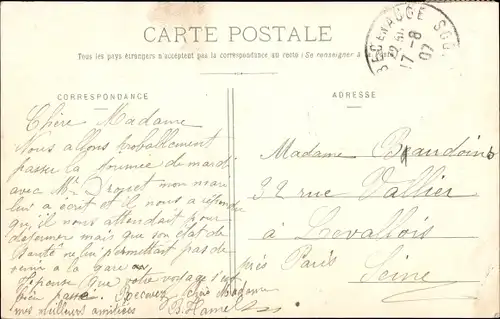 CARTE POSTALE
Tous les pays étrangers n'acceptent pas la correspondance au recto (Se renseigner à la
17-8 07
CORRESPONDANCE
Chère Madame
Nous allons probablement
passer la journée de mardi
avec Mr mon mari
lui a écrit et il nous a répondu
qu'il nous attendait pour
déjeuner mais que son état de
santé ne lui permettait pas de
venir à la gare
que votre voyage s'est
bien passé. Recevez chère Madame
mes meilleurs amitiées B. Hamel
ADRESSE
Madame Beaudoin
92 rue Vallier
à Levallois
près Paris
Seine